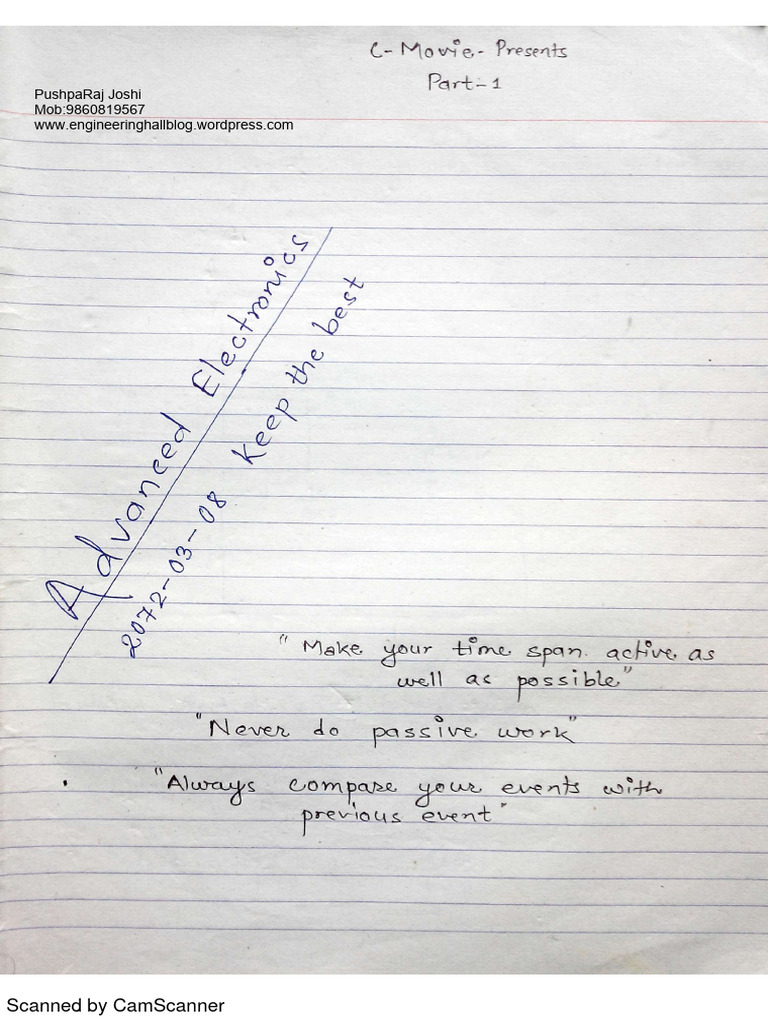 C-Movie-Presents
Part-1
PushpaRaj Joshi
Mob:9860819567
www.engineeringhallblog.wordpress.com
Advanced Electronics
2072-03-08 Keep the best
"Make your time span. active as
well as possible"
"Never do passive work"
"Always compare your events with
previous event"
Scanned by CamScanner